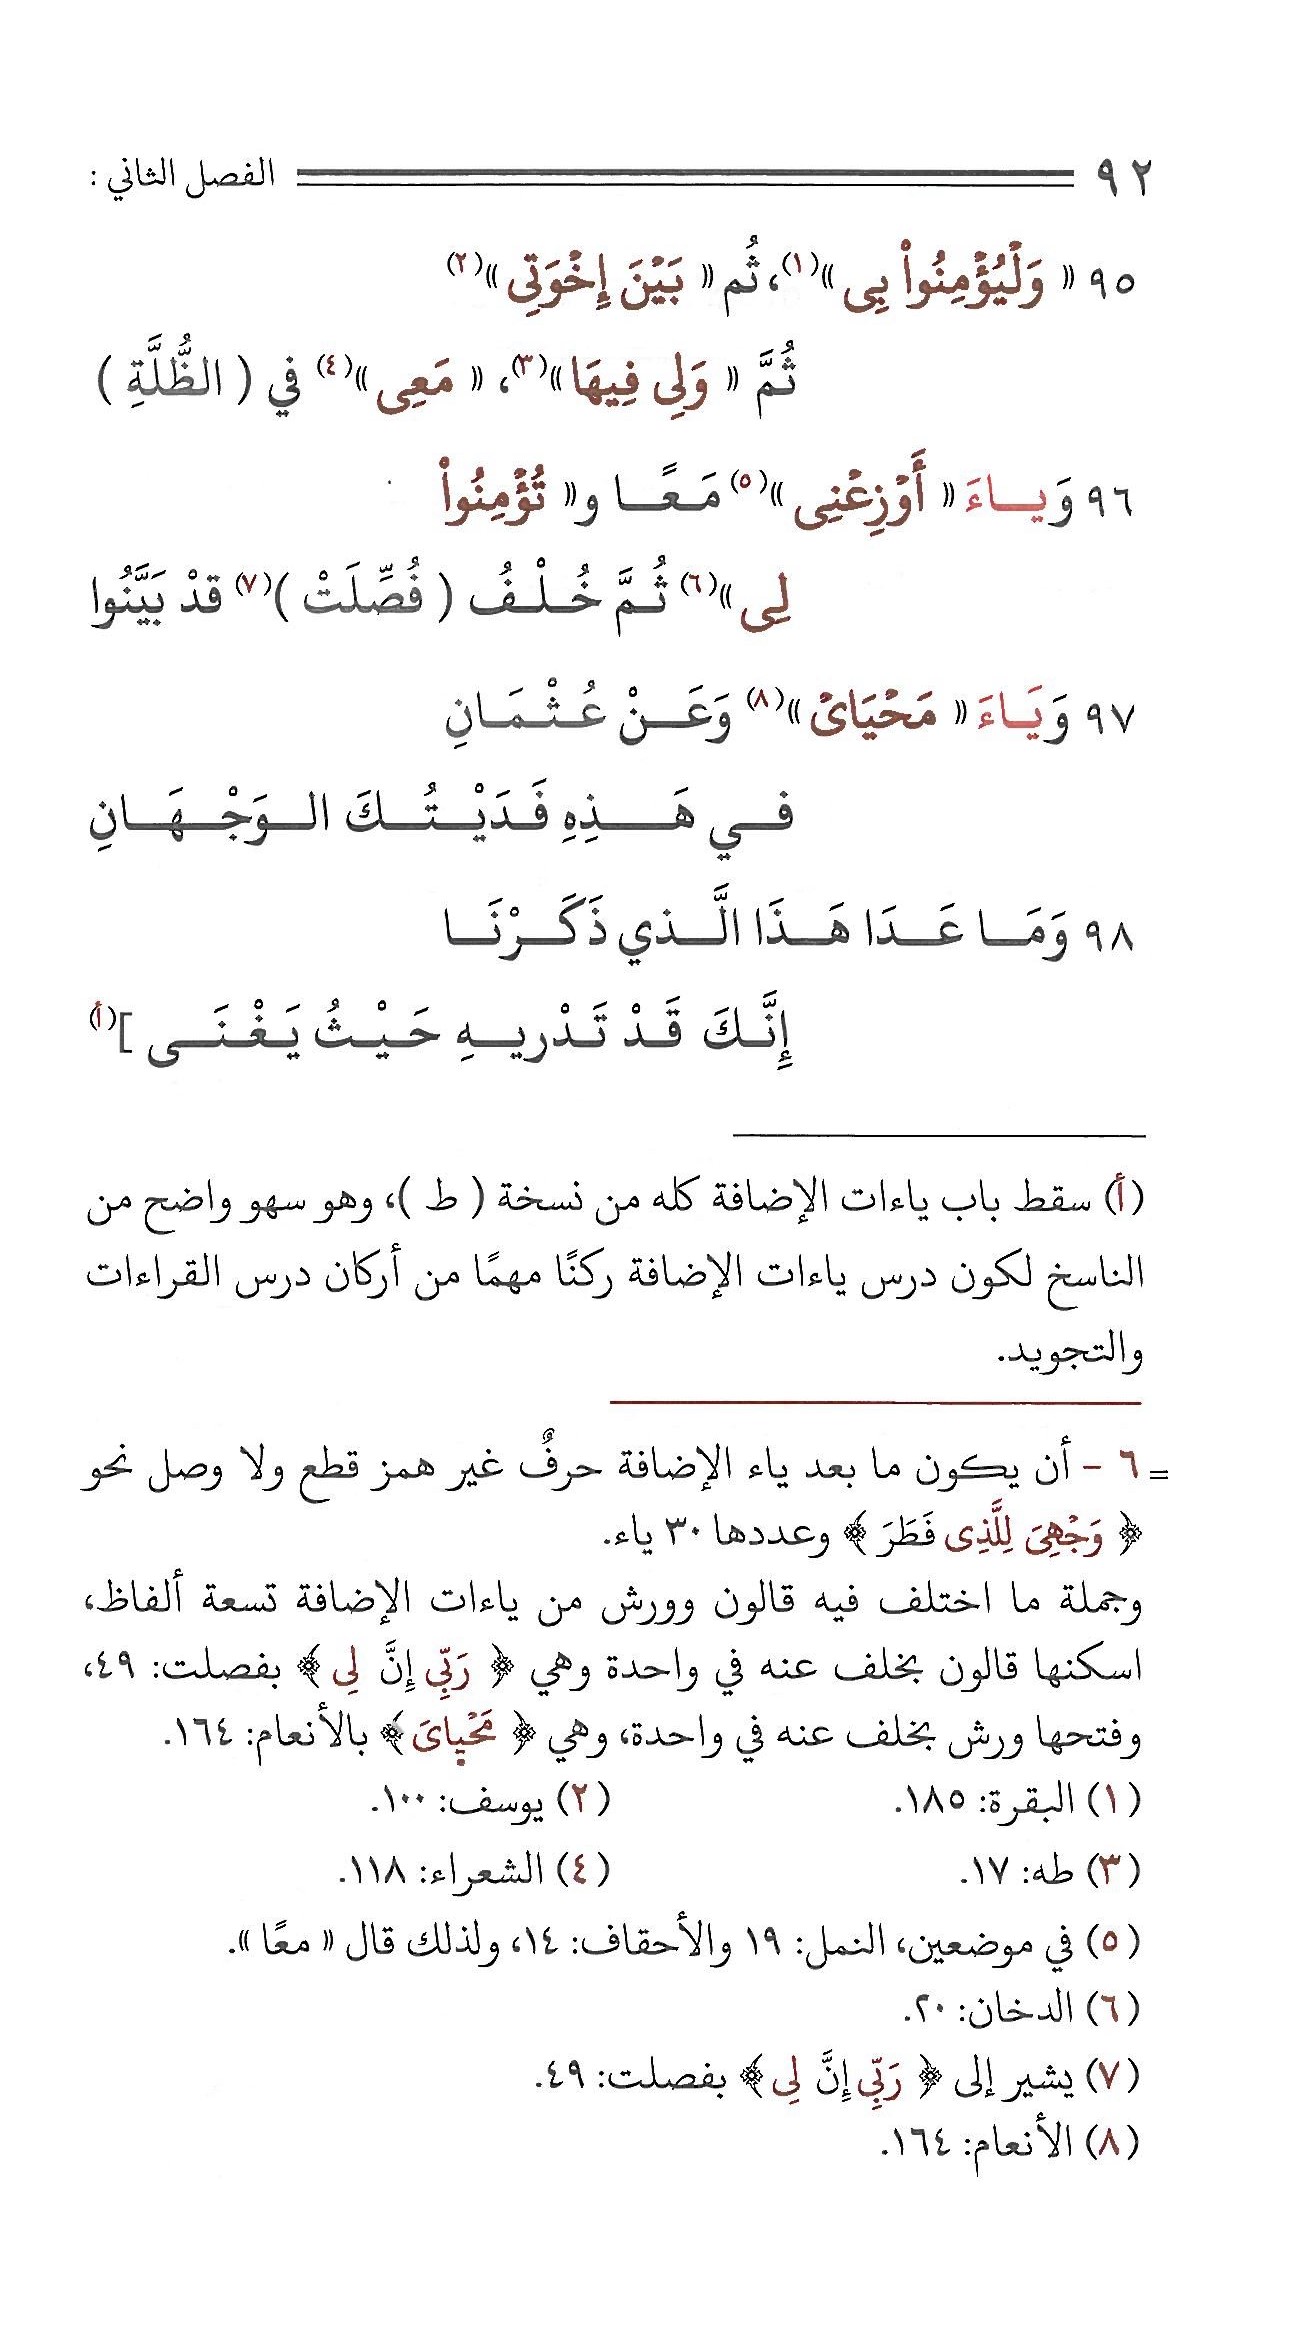 ٩٢ الفصل الثاني :
٩٥ « وَلْيُؤْمِنُواْ بِى »(١)، ثُم « بَيْنَ إِخْوَتِى »(٢)
ثُمَّ « وَلِى فِيهَا »(٣)، « مَعِى »(٤) في ( الظُّلَّةِ )
٩٦ وَيـاءَ « أَوْزِعْنِى »(٥) مَـعًـا و« تُؤْمِنُواْ
لِى »(٦) ثُـمَّ خُـلْـفُ ( فُصِّلَتْ )(٧) قدْ بَيَّنُوا
٩٧ وَيَـاءَ « مَحْيَاىْ »(٨) وَعَـنْ عُـثْـمَـانِ
فـي هَـذِهِ فَـدَيْـتُـكَ الـوَجْـهَـانِ
٩٨ وَمَـا عَـدَا هَـذَا الَّـذي ذَكَـرْنَـا
إِنَّـكَ قَـدْ تَـدْريـهِ حَـيْـثُ يَـغْـنَـى ](أ)
(أ) سقط باب ياءات الإضافة كله من نسخة ( ط )، وهو سهو واضح من
الناسخ لكون درس ياءات الإضافة ركنًا مهمًا من أركان درس القراءات
والتجويد.
= ٦ - أن يكون ما بعد ياء الإضافة حرفٌ غير همز قطع ولا وصل نحو
﴿ وَجْهِىَ لِلَّذِى فَطَرَ ﴾ وعددها ٣٠ ياء.
وجملة ما اختلف فيه قالون وورش من ياءات الإضافة تسعة ألفاظ،
اسكنها قالون بخلف عنه في واحدة وهي ﴿ رَبِّى إِنَّ لِى ﴾ بفصلت: ٤٩،
وفتحها ورش بخلف عنه في واحدة، وهي ﴿ مَحْيِاىَ ﴾ بالأنعام: ١٦٤.
(١) البقرة: ١٨٥. (٢) يوسف: ١٠٠.
(٣) طه: ١٧. (٤) الشعراء: ١١٨.
(٥) في موضعين، النمل: ١٩ والأحقاف: ١٤، ولذلك قال « معًا ».
(٦) الدخان: ٢٠.
(٧) يشير إلى ﴿ رَبِّى إِنَّ لِى ﴾ بفصلت: ٤٩.
(٨) الأنعام: ١٦٤.